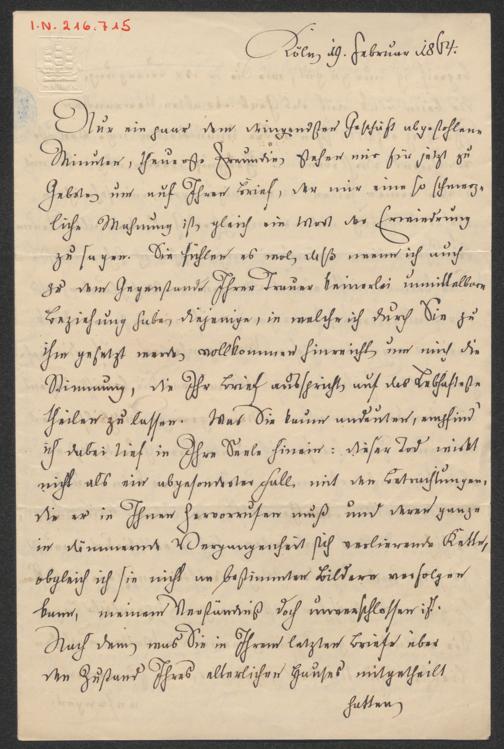 I.N. 216.715
Köln, 19. Februar 1864.
Nur ein paar dem dringendsten Geschäft abgestohlene
Minuten, theuerste Freundin, stehen mir für jetzt zu
Gebote, um auf Ihren Brief, der mir eine so schmerz-
liche Mahnung ist, gleich ein Wort der Erwiederung
zu sagen. Sie fühlen es wol, daß wenn ich auch
zu dem Gegenstande Ihrer Trauer keinerlei unmittelbare
Beziehung habe, diejenige, in welche ich durch Sie zu
ihm gesetzt werde, vollkommen hinreicht, um mich die
Stimmung, die Ihr Brief ausspricht, auf das Lebhafteste
theilen zu lassen. Was Sie kaum andeuten, empfind'
ich dabei tief in Ihre Seele hinein: dieser Tod wirkt
nicht als ein abgesonderter Fall, mit den Betrachtungen,
die er in Ihnen hervorrufen muß und deren ganze
in dämmernde Vergangenheit sich verlierende Kette,
obgleich ich sie nicht an bestimmten Bildern verfolgen
kann, meinem Verständniß doch unverschlossen ist.
Nach dem, was Sie in Ihrem letzten Briefe über
den Zustand Ihres elterlichen Hauses mitgetheilt
hatten,